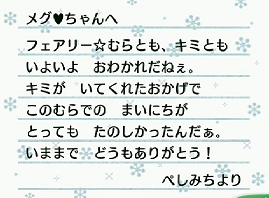 メグ♥ちゃんへ
フェアリー☆むらとも、キミとも
いよいよ　おわかれだねぇ。
キミが　いてくれたおかげで
このむらでの　まいにちが
とっても　たのしかったんだぁ。
いままで　どうもありがとう！
ぺしみちより